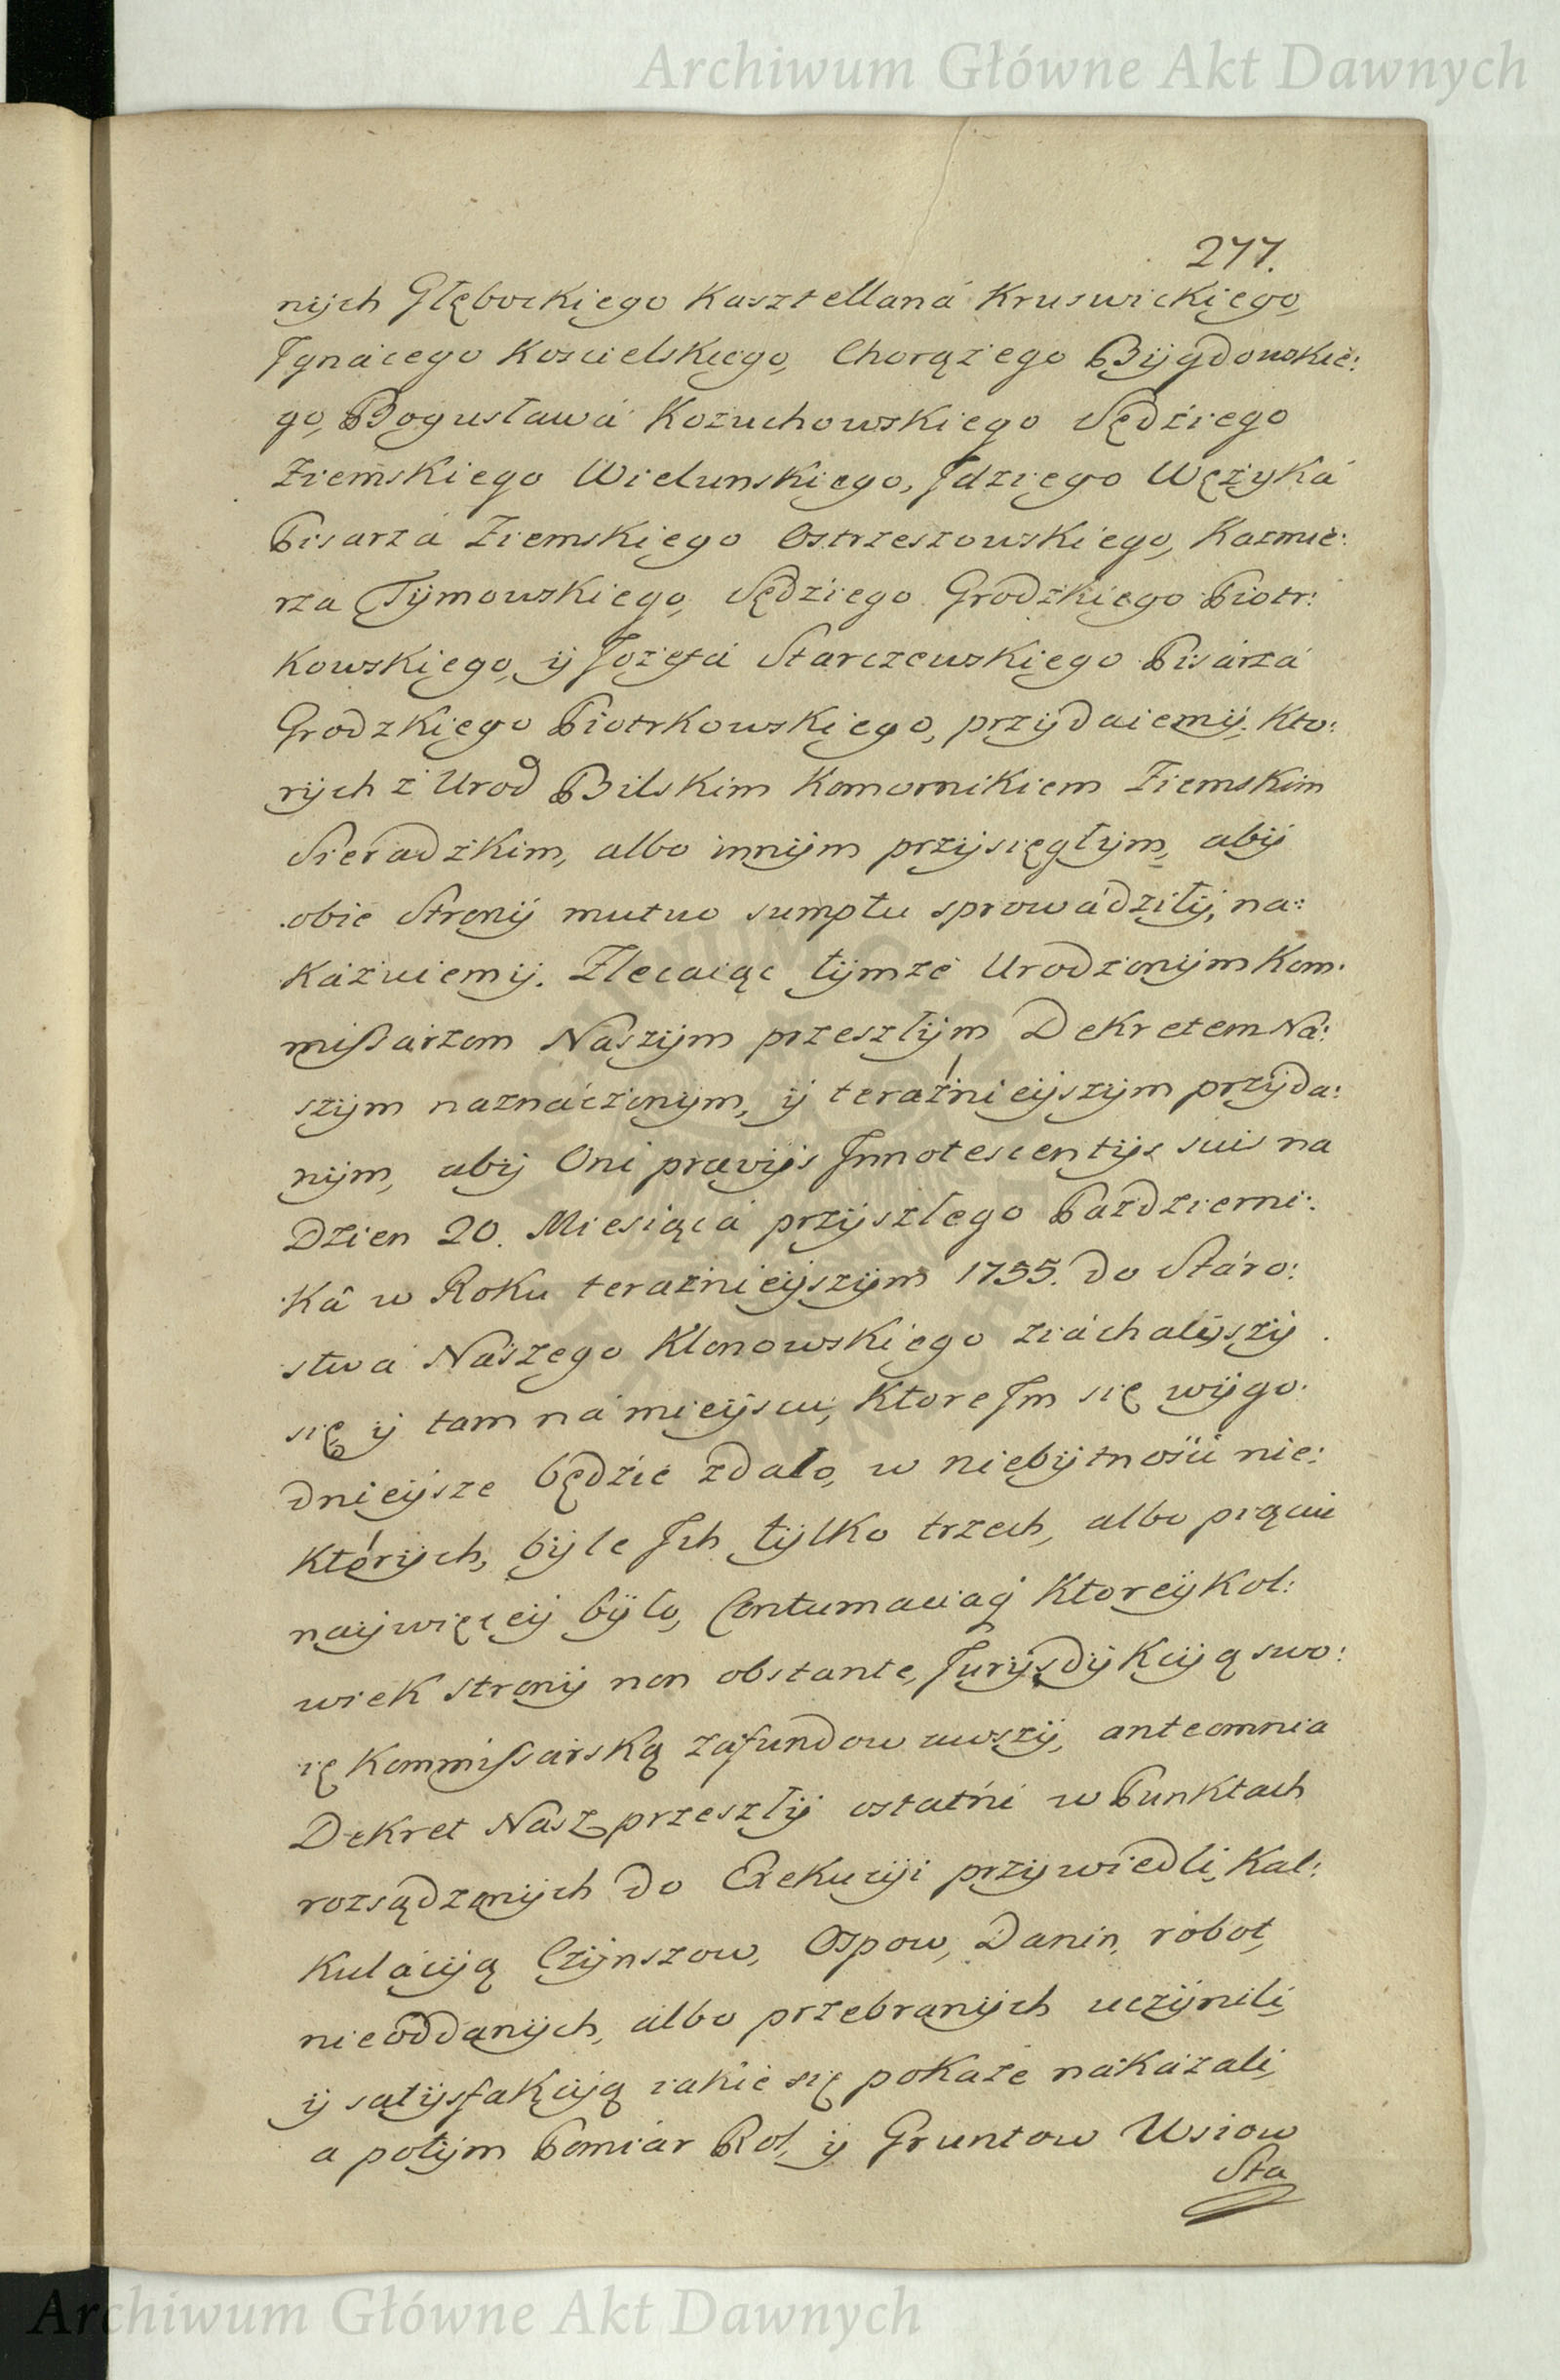 Archiwum Główne Akt Dawnych
277.
nijch Głębockiego Kasztellaná Kruswickiego,
Jgnácego Koscielskiego, Chorążego Bijgdowskie:
go, Bogusławá Kozuchowskiego Sędziego
Ziemskiego Wielunskiego, Jdziego Wężyká
Pisarzá Ziemskiego Ostrzeszowskiego, Kazmie:
rza Tijmowskiego, Sędziego Grodzkiego Piotr:
kowskiego, ij Jozefá Starczewskiego Pisárzá
Grodzkiego Piotrkowskiego, przijdaiemij. Kto:
rijch z Urod Bilskim Komornikiem Ziemskim
Sieradzkim, albo innijm przijsięgłijm, abij
obie Stronij mutuo sumptu sprowádziłij, na:
káżuiemij. Zlecaiąc tijmże Urodzonijm Kom:
mißarzom Naszijm przeszłijm Dekretem Na:
szijm náznáczonijm, ij teraźnieijszijm przijda:
nijm, abij Oni prævijs Jnnotescentijs suis na
Dzien 20. Miesiącá przijszłego Pazdzierni:
ká w Roku teraznieijszijm 1755. do Stáro:
stwá Nászego Klonowskiego ziáchalijszij
się, ij tam ná mieijscu, Ktore Jm się wijgo:
dnieijsze będzie zdało, w niebijtnosci nie:
Którijch, bijle Jch tijlko trzech, albo piąciu
naijwięceij bijło, Contumaciaq Ktoreijkol:
wiek Stronij non obstante, Jurijsdijkciją swo:
ię Kommissarską zafundowawszij, anteomnia
Dekret Nasz przeszłij ostatńi w Punktach
rozsądzonijch do Exekuciji przijwiedli, Kal:
kulácijją Czijnszow, Ospow, Danin, robot,
nieoddanijch, albo przebranijch uczijnili,
ij satijsfakcijją iakie się pokaże nakázali,
a potijm Pomiár Rol, ij Gruntow Wsiow
Sta
Archiwum Główne Akt Dawnych